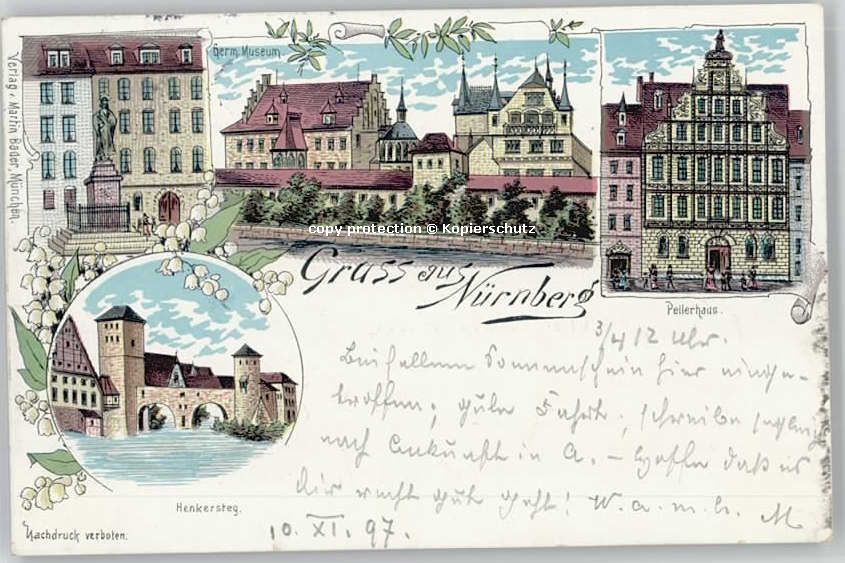 Verlag v. Martin Bader, München.
Germ. Museum.
copy protection © Kopierschutz
Gruss aus Nürnberg
Pellerhaus.
3/4 12 Uhr.
Bei hellem Sonnenschein hier einge-
troffen, gute Fahrt, schreibe sogleich
nach Ankunft in A. – Hoffe daß es
Dir recht gut geht! W. a. m. h. M
Henkersteg.
10. XI. 97.
Nachdruck verboten.